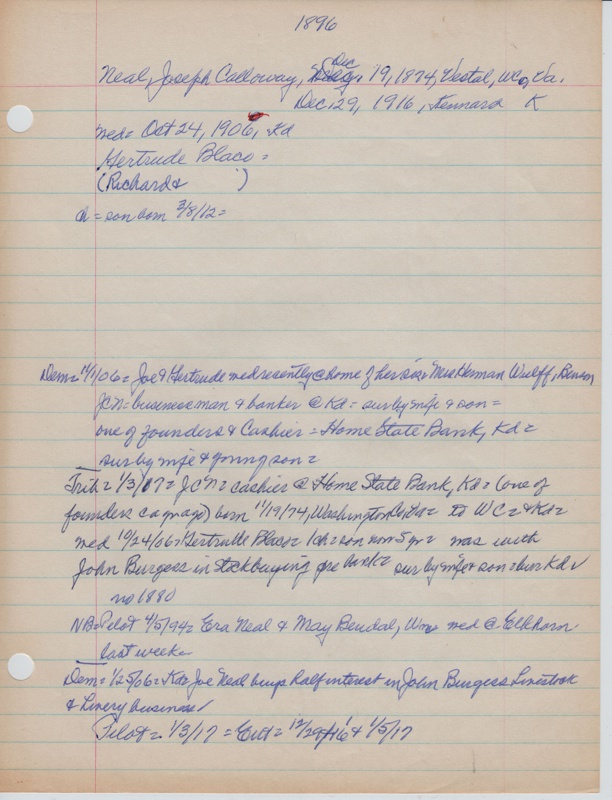 1896
Neal, Joseph Calloway, Dec 19, 1874, Vestal, WCo, Va.
Dec. 29, 1916, Kennard K
med= Oct 24, 1906, Kd
Gertrude Blaco =
(Richard & )
ch = son born 3/8/12 =
Dem= 11/1/06= Joe & Gertrude med recently @ home of her sis= Mrs Herman Wulff, Benson
JCN= businessman & banker @ Kd= sur by wife & son=
one of founders & Cashier = Home State Bank, Kd=
sur by wife & young son=
Trib= 1/3/17= JCN= cashier @ Home State Bank, Kd= (one of
founders) born 11/19/74, Washington Co, Va= to WC= & Kd=
med 10/24/06= Gertrude Blaco= 1ch= son now 5 yr= was with
John Burgess in stockbuying pre bank= sur by wife & son= bur Kd ✓
no 1880
NB= Pilot 4/5/94= Era Neal & May Bendal, med @ Elkhorn
last week=
Dem= 1/25/06= Kd= Joe Neal buys half interest in John Burgess Livestock
& Livery business ✓
Pilot= 1/3/17 = Ent= 12/29/16 & 1/5/17